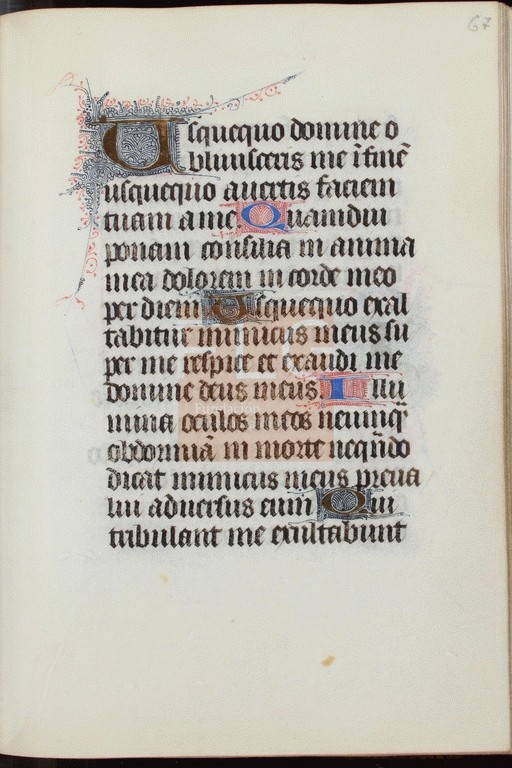 67
Usquequo domine o
blivisceris me ī finē
usquequo avertis faciem
tuam a me Quamdiu
ponam consilia in anima
mea dolorem in corde meo
per diem Usquequo exal
tabitur inimicus meus su
per me respice et exaudi me
domine deus meus. Illu
mina oculos meos ne
obdormiā in morte neqñdo
dicat inimicus meus preva
lui adversus eum Qui
tribulant me exultabunt
Fundación